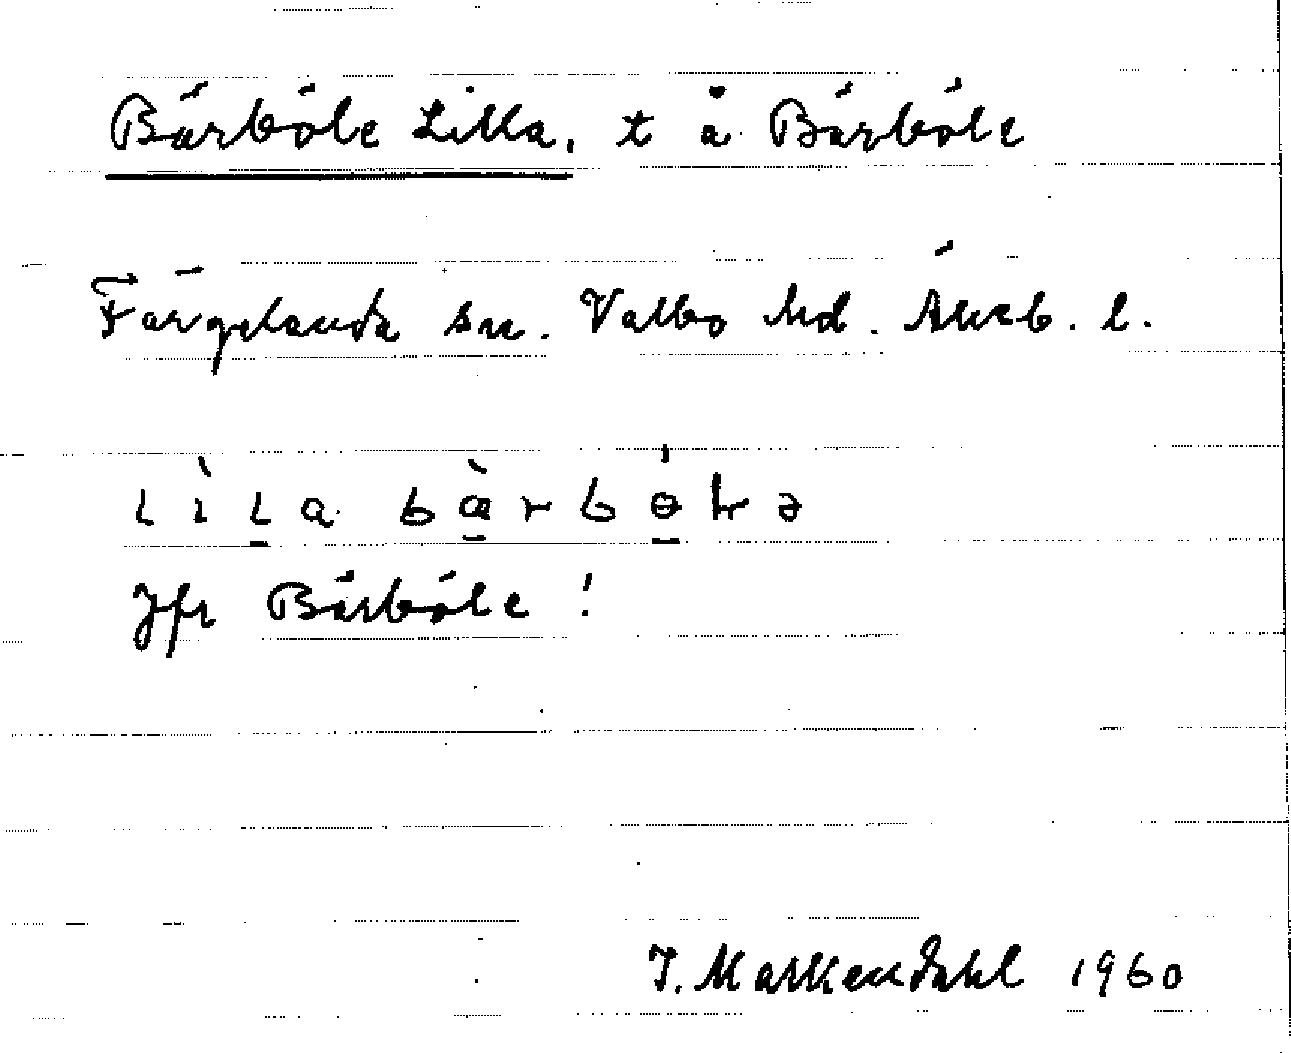 Bärböle Lilla, t å Bärböle
Färgelanda sn. Valbo hd. Älvsb. l.
lìla bæ̀rbɵ́lə
Jfr Bärböle!
J. Markendahl 1960